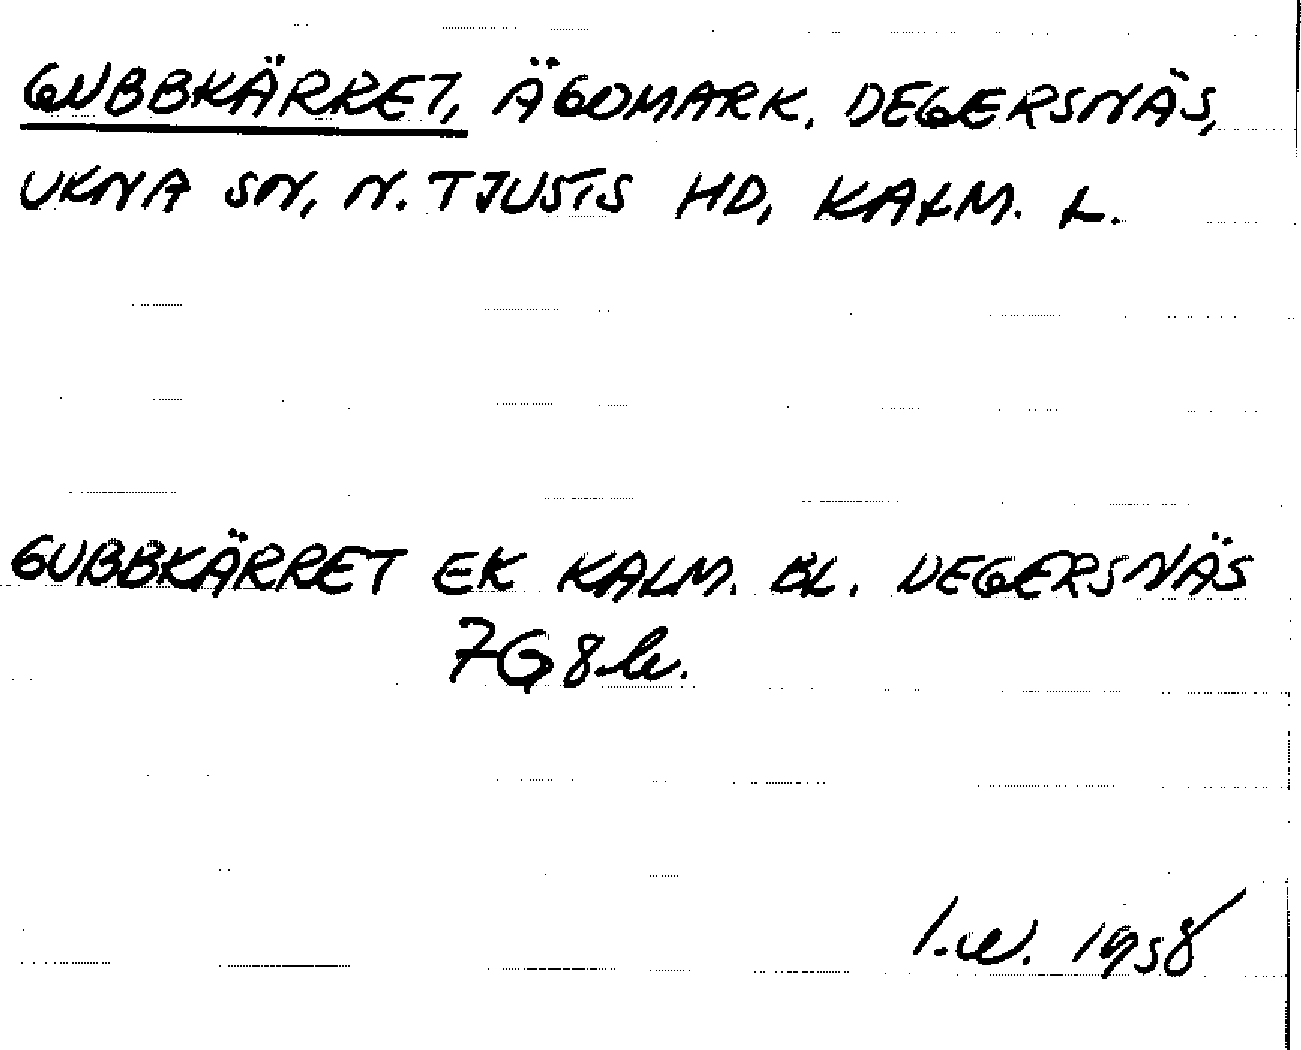 GUBBKÄRRET, ÄGOMARK. DEGERSNÄS,
UKNA SN, N. TJUSTS HD, KALM. L.
GUBBKÄRRET EK KALM. BL. DEGERSNÄS
7G8le.
I.W. 1958